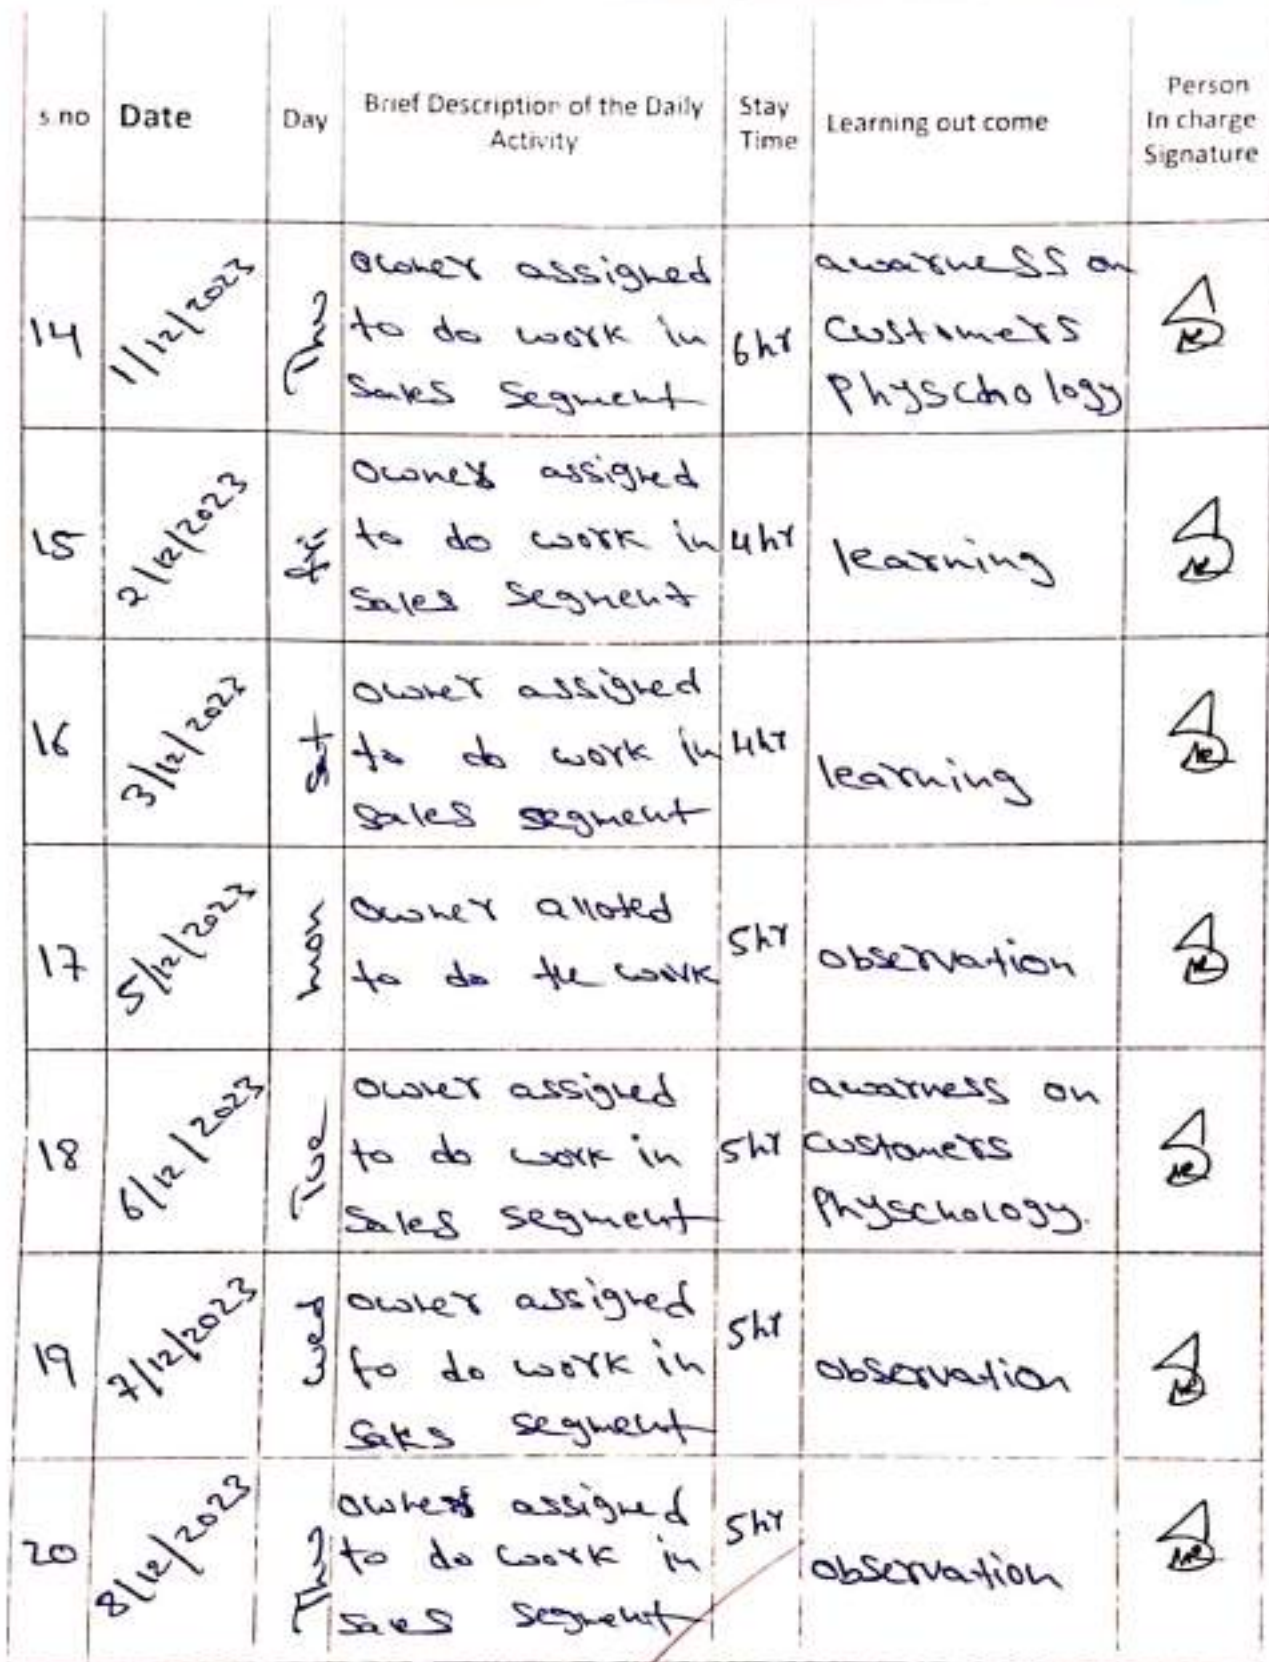 s no Date Day Brief Description of the Daily Activity Stay Time Learning out come Person In charge Signature
14 1/12/2023 Thu owner assigned to do work in Sales Segment 6hr awarness on Customers Physchology
15 2/12/2023 fri owner assigned to do work in Sales Segment 4hr learning
16 3/12/2023 sat owner assigned to do work in sales segment 4hr learning
17 5/12/2023 mon owner alloted to do the work 5hr observation
18 6/12/2023 Tue owner assigned to do work in Sales segment 5hr awarness on customers Physchology.
19 7/12/2023 wed owner assigned to do work in Sales segment 5hr observation
20 8/12/2023 Thu owner assigned to do work in Sales Segment 5hr observation